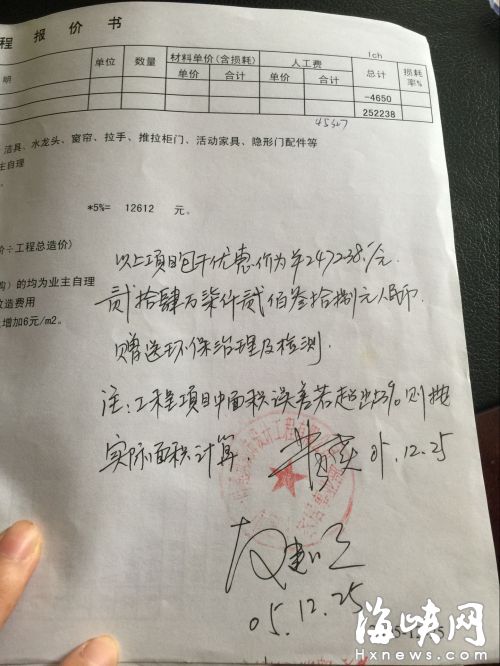 程 报 价 书
明 单位 数量 材料单价(含损耗) 人工费 总计 损耗率%
单价 合计 单价 合计
-4650
252238
洁具、水龙头、窗帘、拉手、推拉柜门、活动家具、隐形门配件等
主自理
*5%= 12612 元。
价÷工程总造价)
以上项目包干优惠价为¥247238./元.
购）的均为业主自理
贰拾肆万柒仟贰佰叁拾捌元人民币.
改造费用
增加6元/m2。
赠送环保治理及检测.
注:工程项目中面积误差若超出3%则按
实际面积计算.
05.12.25
05.12.25
海峡网
Hxnews.com